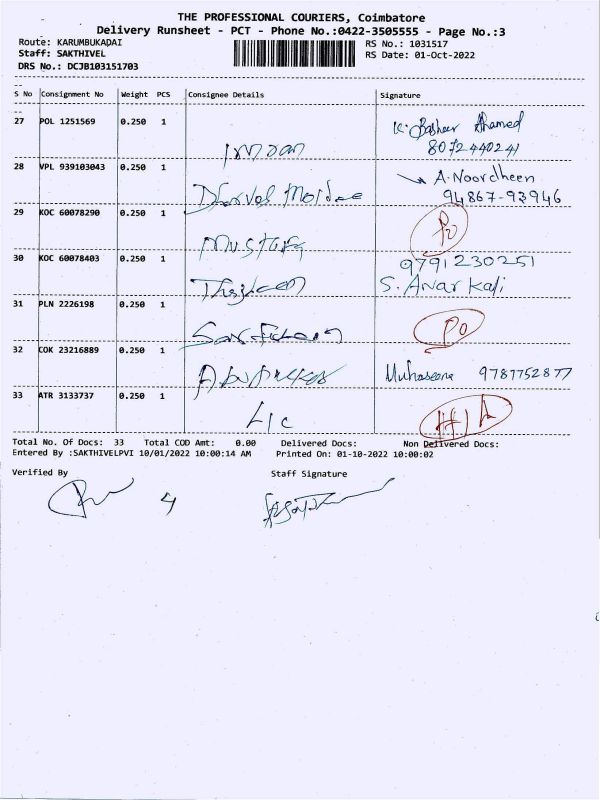 THE PROFESSIONAL COURIERS, Coimbatore
Delivery Runsheet - PCT - Phone No.:0422-3505555 - Page No.:3
Route: KARUMBUKADAI
RS No.: 1031517
Staff: SAKTHIVEL
RS Date: 01-Oct-2022
DRS No.: DCJB103151703
S No Consignment No Weight PCS Consignee Details Signature
27 POL 1251569 0.250 1 Imran K. Basheer Ahamed
8072440241
28 VPL 939103043 0.250 1 A. Noordheen
94867-93946
29 KOC 60078290 0.250 1 Mustafa
30 KOC 60078403 0.250 1 9791230251
S. Anarkali
31 PLN 2226198 0.250 1 PO
32 COK 23216889 0.250 1 Muhaseena 9787752877
33 ATR 3133737 0.250 1 LIC
Total No. Of Docs: 33 Total COD Amt: 0.00 Delivered Docs: Non Delivered Docs:
Entered By :SAKTHIVELPVI 10/01/2022 10:00:14 AM Printed On: 01-10-2022 10:00:02
Verified By Staff Signature